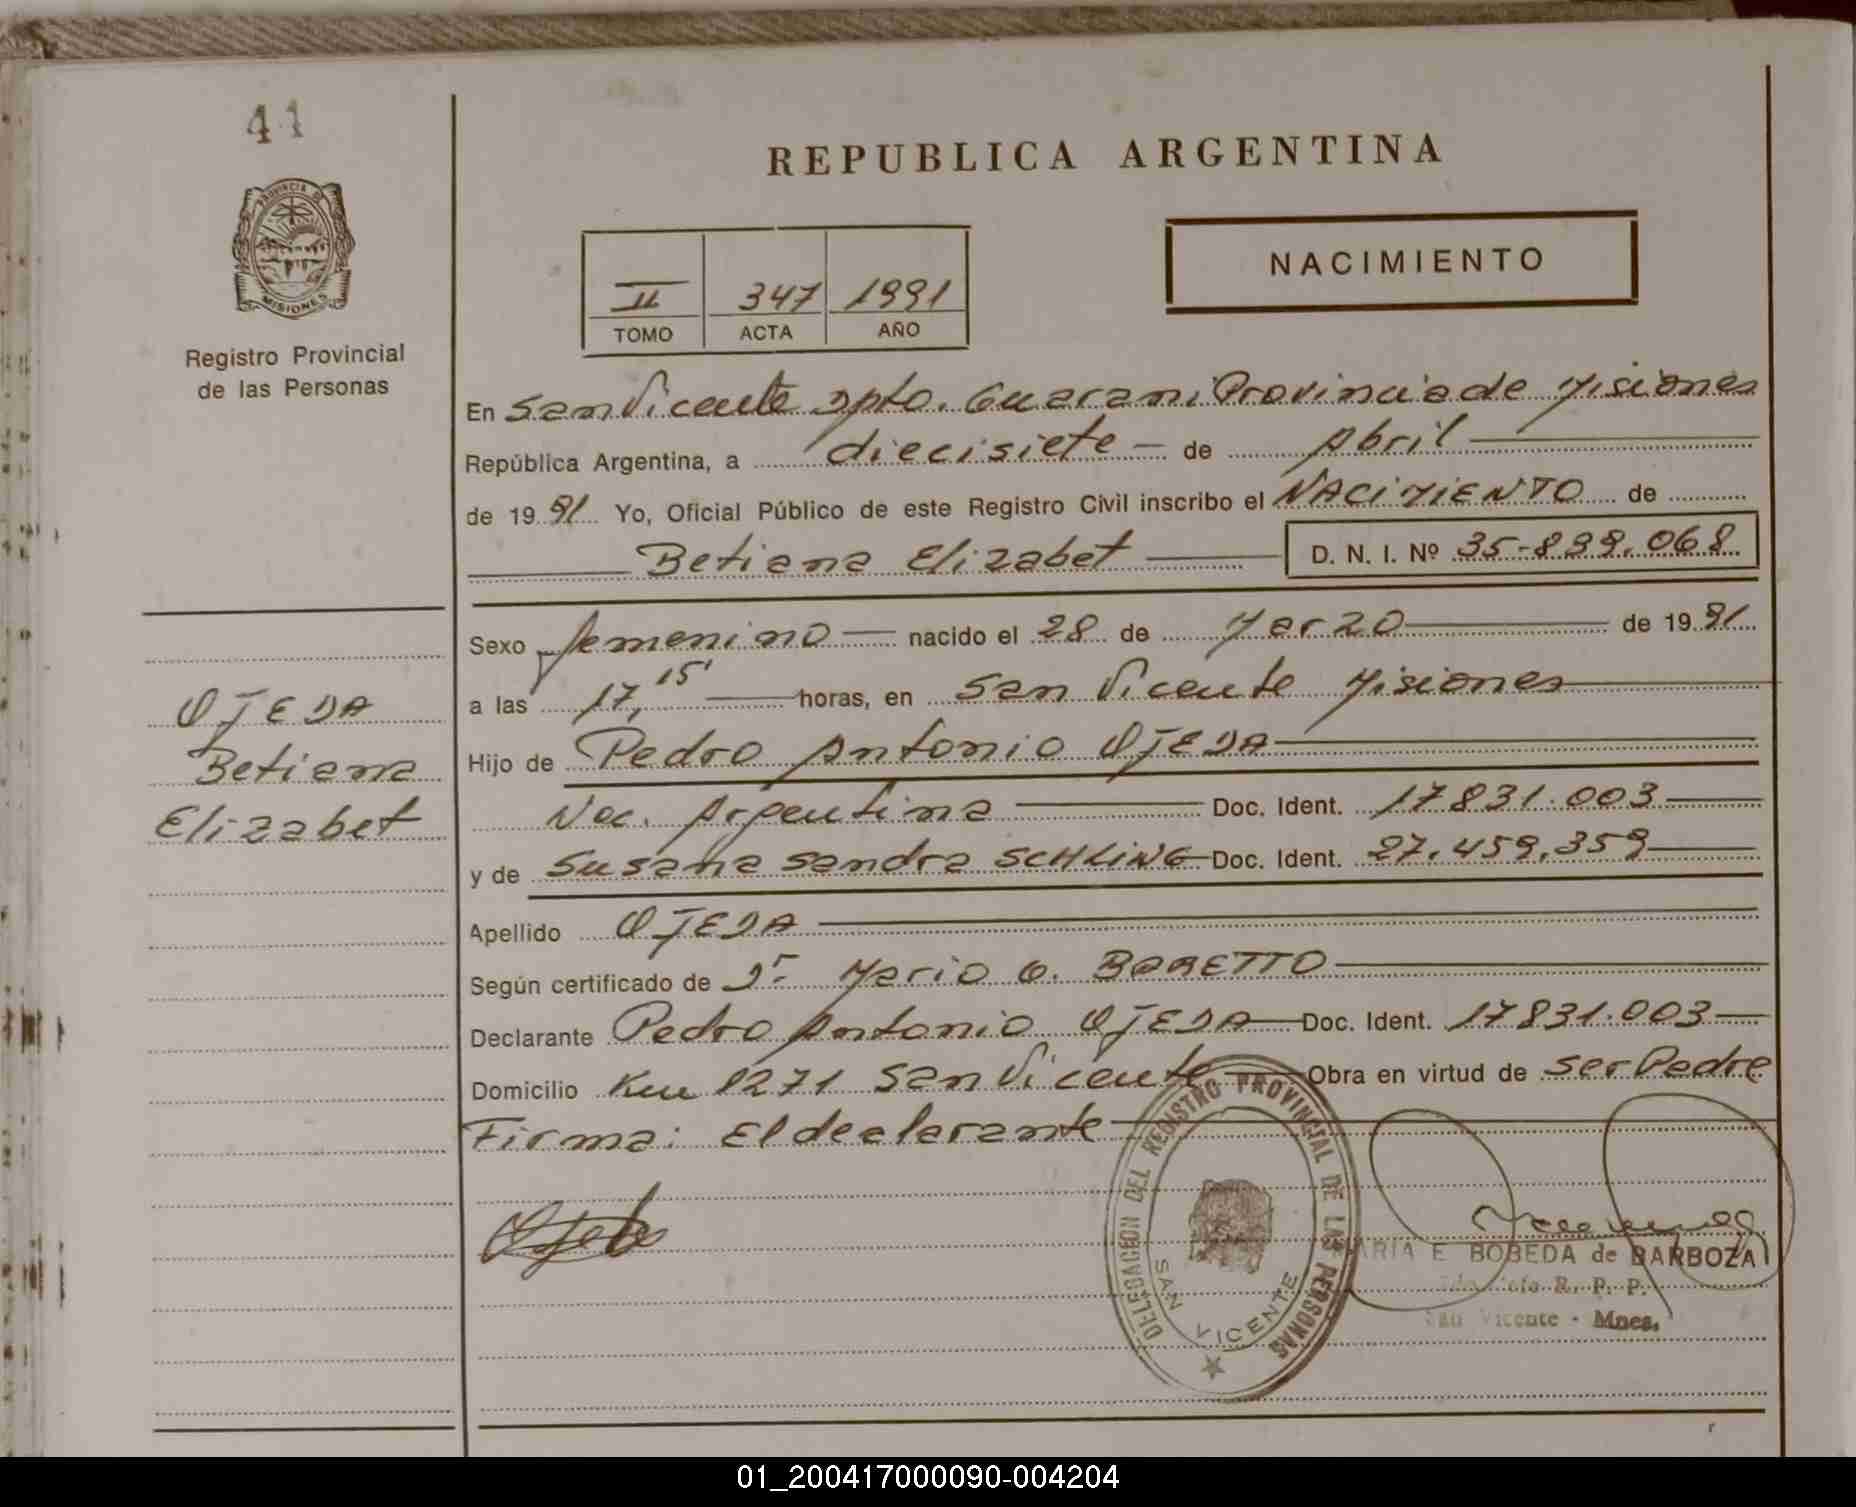 41
PROVINCIA DE
MISIONES
Registro Provincial
de las Personas
REPUBLICA ARGENTINA
II 347 1991
TOMO ACTA AÑO
NACIMIENTO
En San Vicente Dpto. Guarani Provincia de Misiones
República Argentina, a diecisiete de Abril
de 1991 Yo, Oficial Público de este Registro Civil inscribo el NACIMIENTO de
Betiana Elizabet D. N. I. Nº 35-899.068
Sexo femenino nacido el 28 de Marzo de 1991
a las 17,15' horas, en San Vicente Misiones
Hijo de Pedro Antonio OJEDA
Nac. Argentina Doc. Ident. 17831.003
y de Susana Sandra SCHLING Doc. Ident. 27.459.359
Apellido OJEDA
Según certificado de Dr. Mario O. BARETTO
Declarante Pedro Antonio OJEDA Doc. Ident. 17831.003
Domicilio Km 1271 San Vicente Obra en virtud de ser Padre
Firma: El declarante
OJEDA
Betiana
Elizabet
DELEGACION DEL REGISTRO PROVINCIAL DE LAS PERSONAS
SAN VICENTE
MARIA E BOBEDA de BARBOZA
R. P. P.
San Vicente - Mnes.
01_200417000090-004204